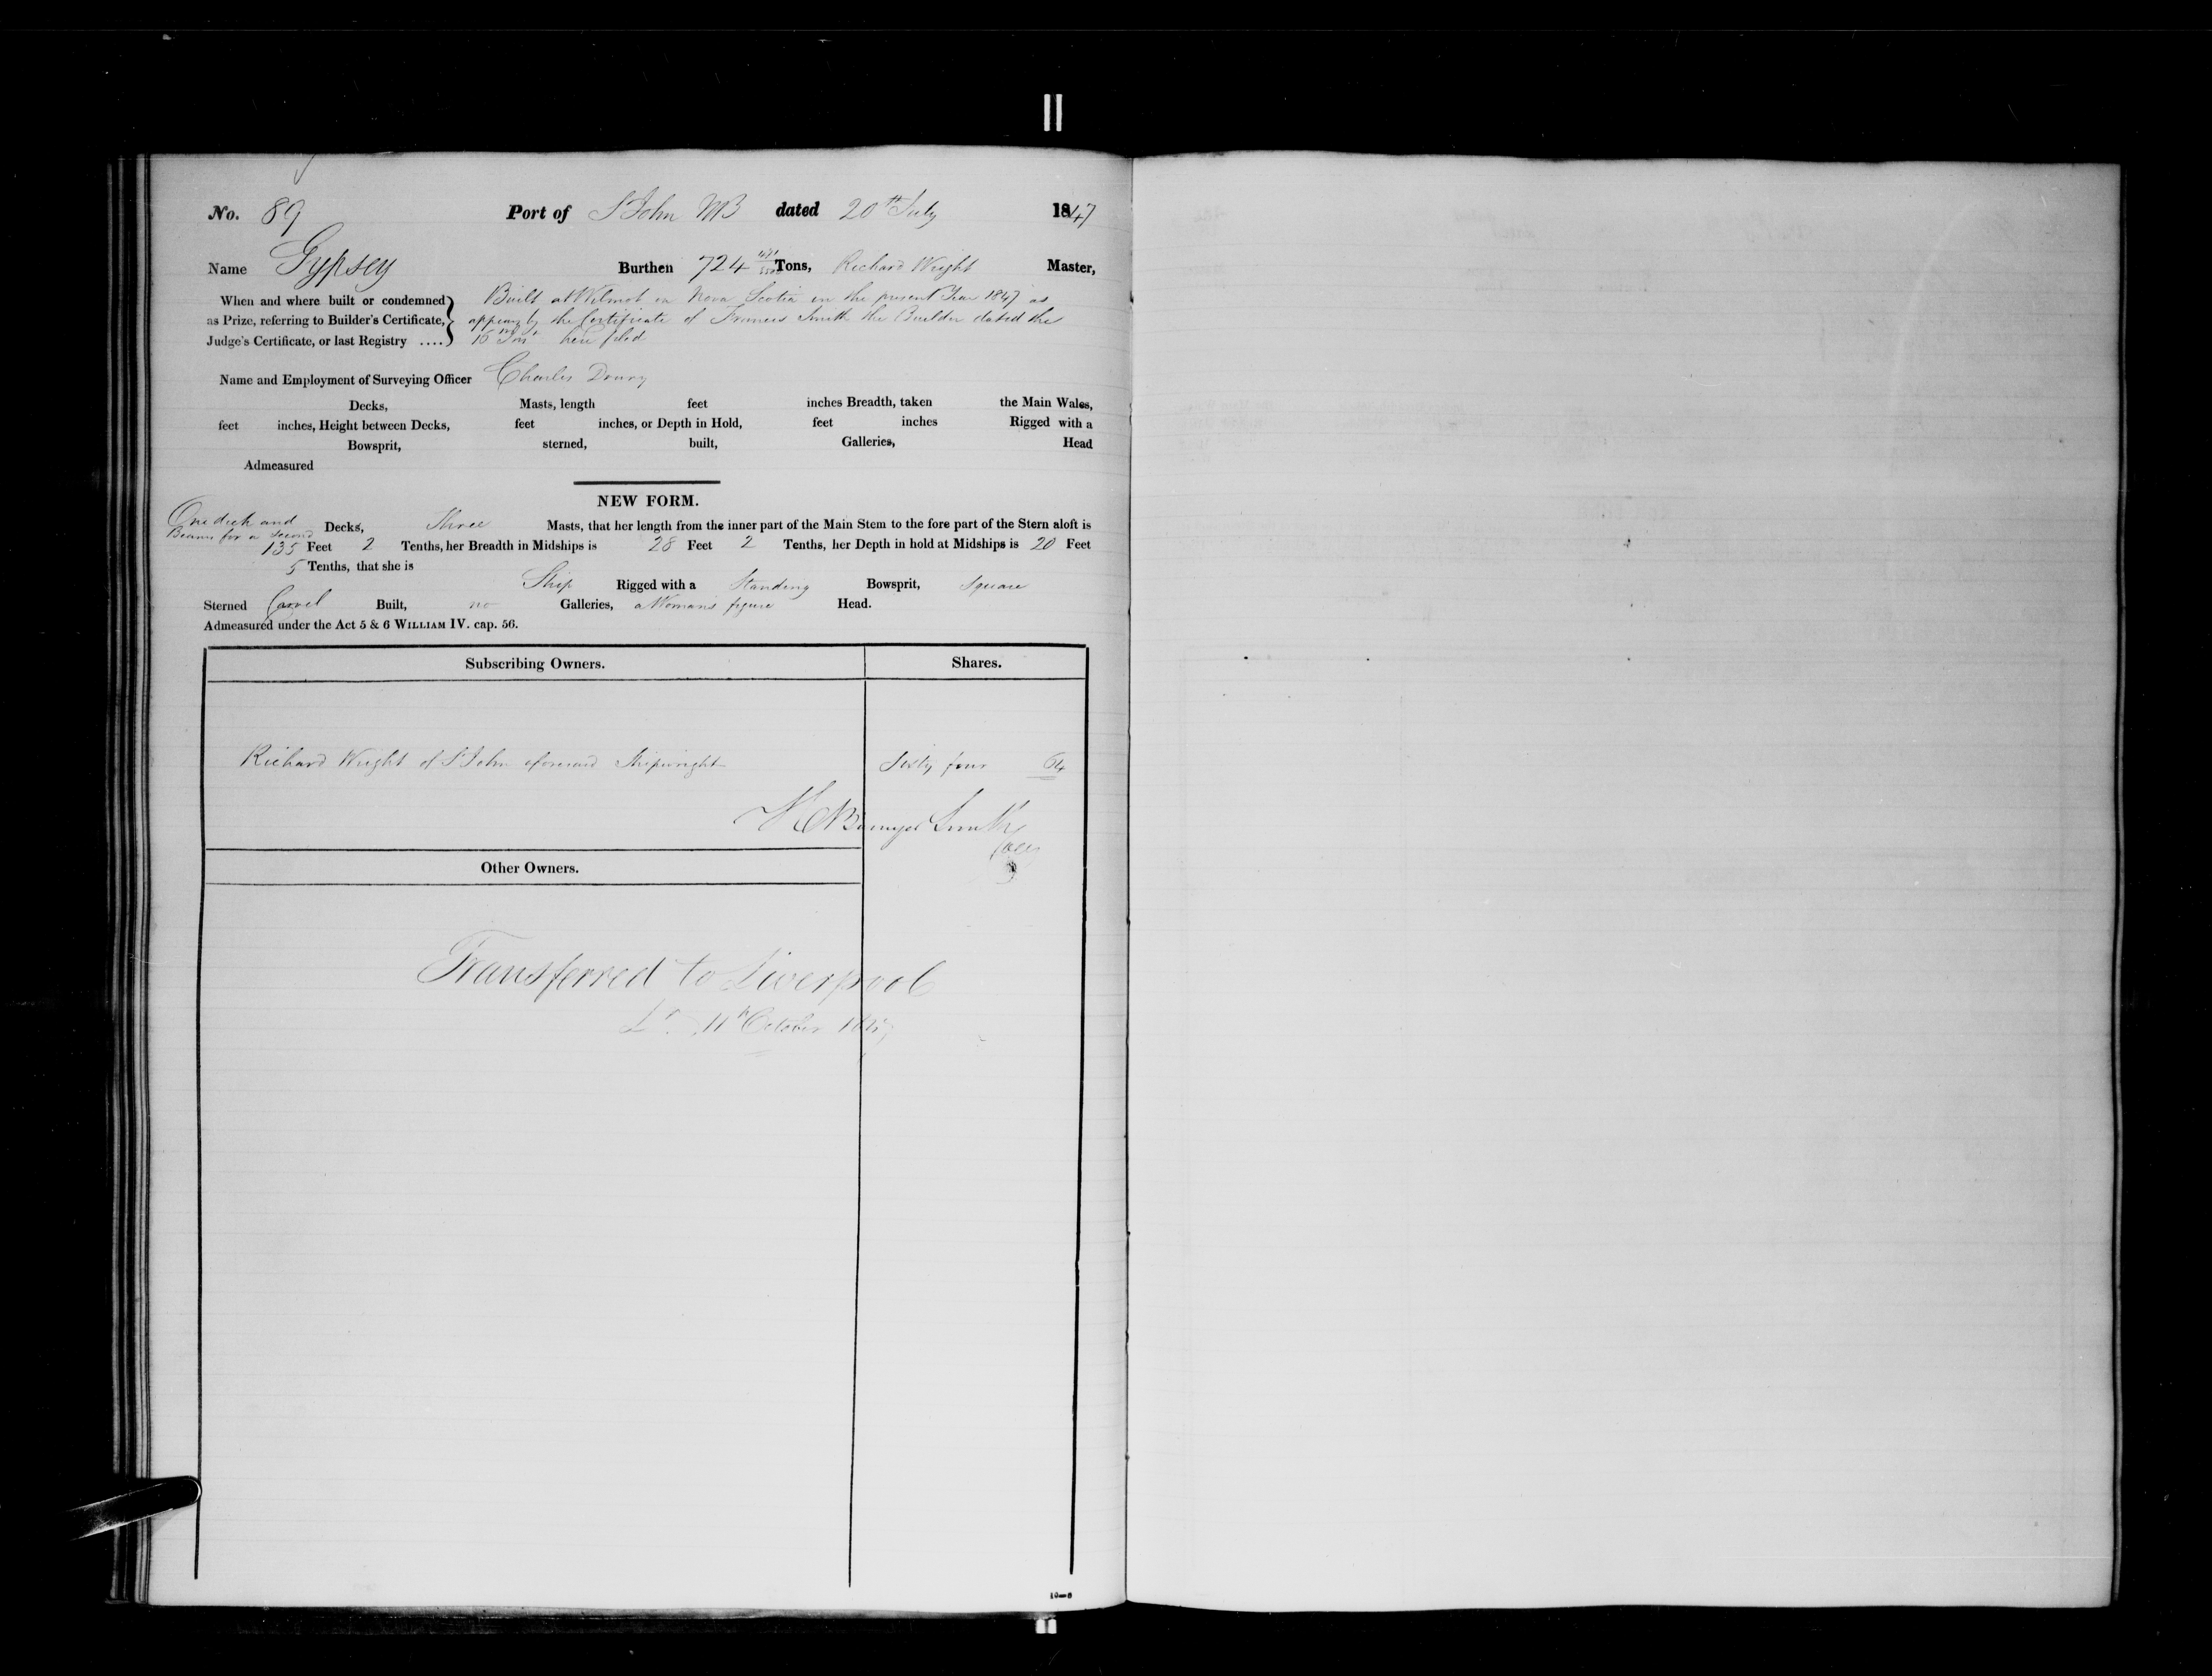 No. 89 Port of St John NB dated 20th July 1847
Name Gypsey Burthen 724 Tons, Richard Wright Master,
When and where built or condemned Built at Wilmot in Nova Scotia in the present Year 1847 as
as Prize, referring to Builder's Certificate, appears by the Certificate of Francis Smith the Builder dated the
Judge's Certificate, or last Registry .... Inst here filed
Name and Employment of Surveying Officer Charles Drury
Decks, Masts, length feet inches Breadth, taken the Main Wales,
feet inches, Height between Decks, feet inches, or Depth in Hold, feet inches Rigged with a
Bowsprit, sterned, built, Galleries, Head
Admeasured
NEW FORM.
One deck and
Beams for a second
Decks, Three Masts, that her length from the inner part of the Main Stem to the fore part of the Stern aloft is
135 Feet 2 Tenths, her Breadth in Midships is 28 Feet 2 Tenths, her Depth in hold at Midships is 20 Feet
5 Tenths, that she is
Ship Rigged with a Standing Bowsprit, Square
Sterned Carvel Built, no Galleries, a Womans figure Head.
Admeasured under the Act 5 & 6 WILLIAM IV. cap. 56.
Subscribing Owners. Shares.
Richard Wright of St John aforesaid Shipwright Sixty four 64
Smith
Other Owners.
Transferred to Liverpool
11th October 1847
10—8